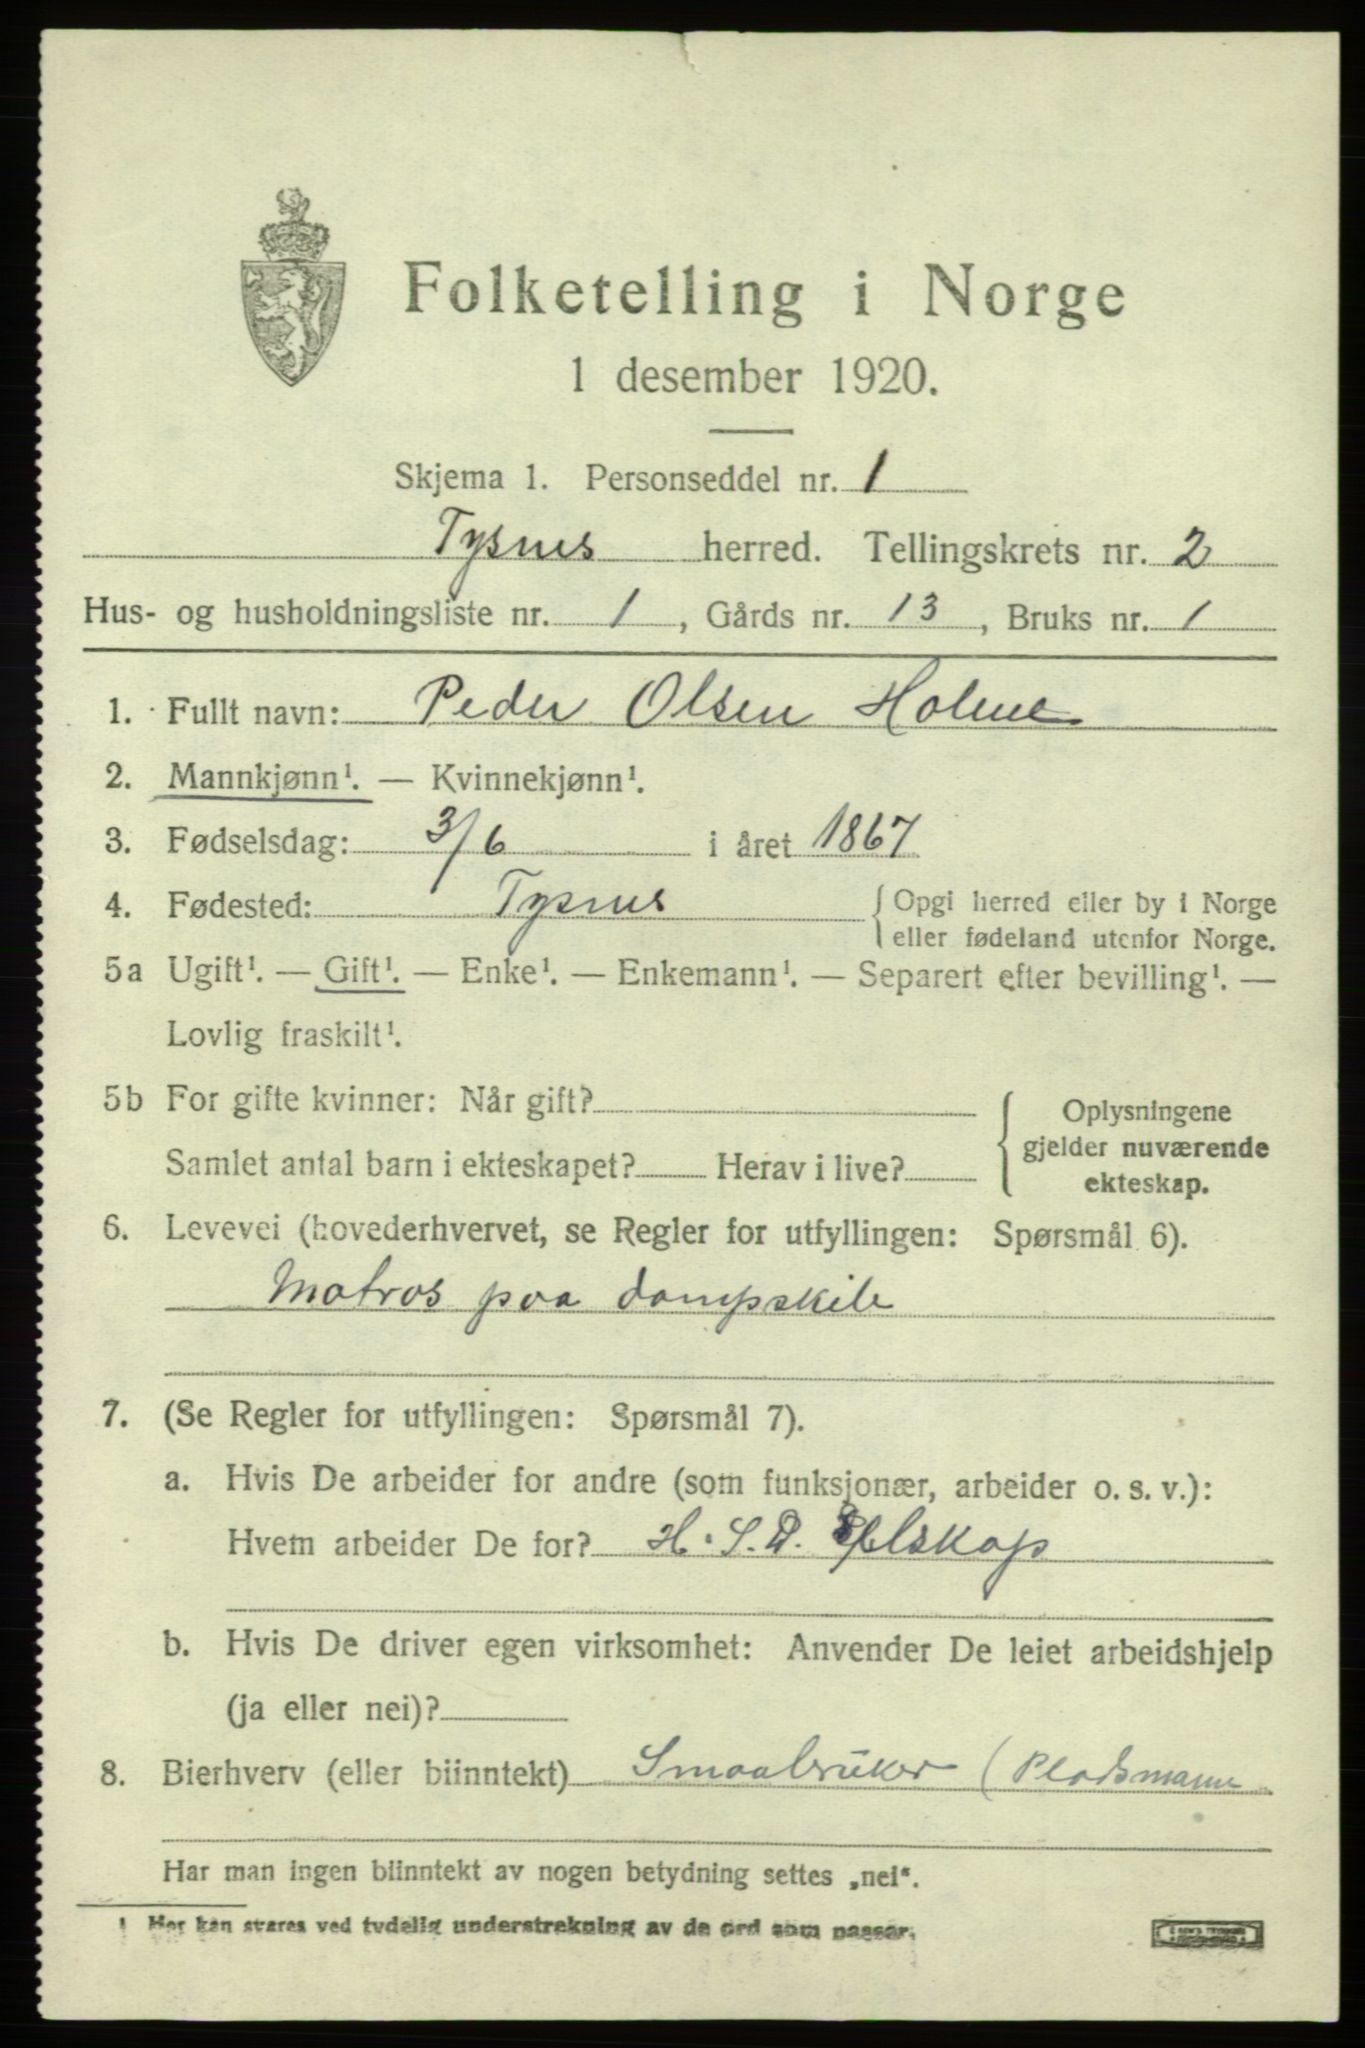 Folketelling i Norge
1 desember 1920.
Skjema 1. Personseddel nr. 1
Tysnes herred. Tellingskrets nr. 2
Hus- og husholdningsliste nr. 1, Gårds nr. 13, Bruks nr. 1
1. Fullt navn: Peder Olsen Holme
2. Mannkjønn¹. — Kvinnekjønn¹.
3. Fødselsdag: 3/6 i året 1867
4. Fødested: Tysnes { Opgi herred eller by i Norge
eller fødeland utenfor Norge.
5a Ugift¹. — Gift¹. — Enke¹. — Enkemann¹. — Separert efter bevilling¹. —
Lovlig fraskilt¹.
5b For gifte kvinner: Når gift?
Samlet antal barn i ekteskapet? Herav i live?
Oplysningene
gjelder nuværende
ekteskap.
6. Levevei (hovederhvervet, se Regler for utfyllingen: Spørsmål 6).
Matros paa dampskib
7. (Se Regler for utfyllingen: Spørsmål 7).
a. Hvis De arbeider for andre (som funksjonær, arbeider o. s. v.):
Hvem arbeider De for? H. S. D. Selskap
b. Hvis De driver egen virksomhet: Anvender De leiet arbeidshjelp
(ja eller nei)?
8. Bierhverv (eller biinntekt) Smaabruker (Pladsmann
Har man ingen biinntekt av nogen betydning settes „nei“.
1 Her kan svares ved tydelig understrekning av de ord som passer.